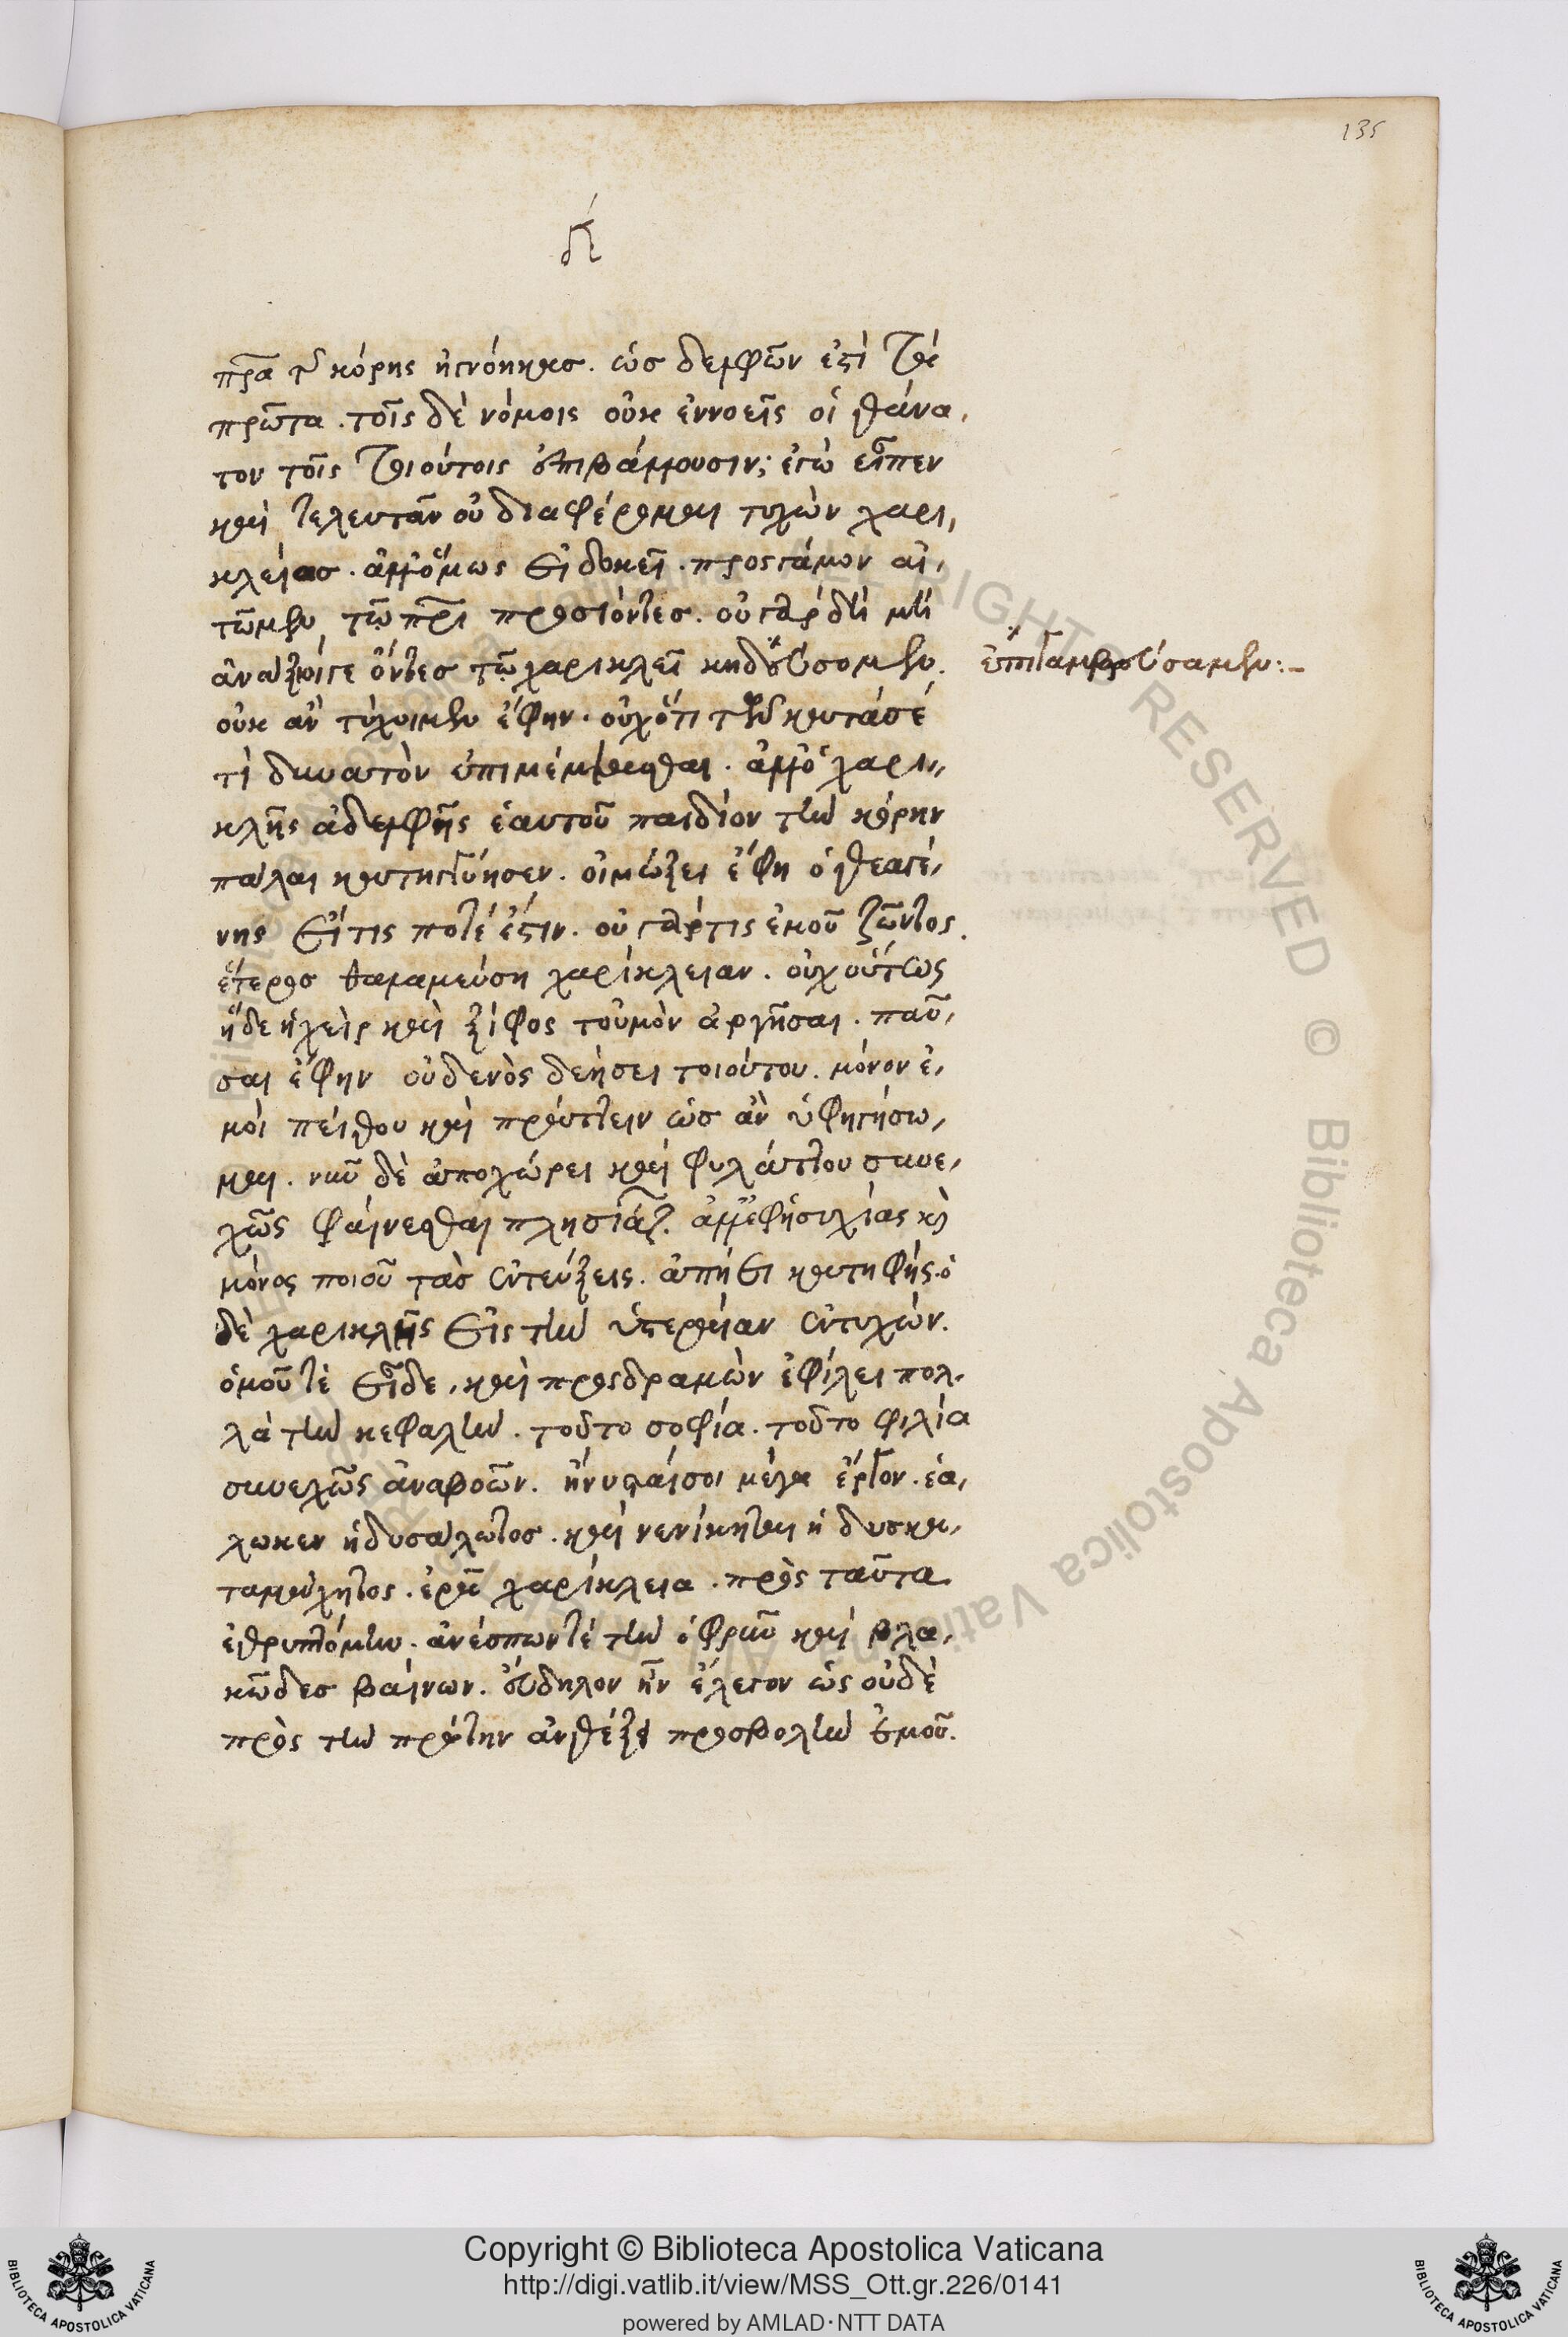 135
π̅
πρα τ κόρης ἠγνόηκας. ὡς δελφῶν ἐστὶ τὰ
πρῶτα. τοῖς δὲ νόμοις οὐκ ἐννοεῖς οἱ θάνα,
τον τοῖς τοιούτοις ἐπιβάλλουσιν; ἐγὼ εἶπεν
καὶ τελευτᾶν οὐ διαφέρομαι τυχὼν χαρι,
κλείας. ἀλλ' ὅμως εἰ δοκεῖ. προς γάμον αἰ,
τῶμεν τῷ πρι προσιόντες. οὐ γὰρ δὴ μὴ
ἀναξιοί γε ὄντες τῷ χαρικλεῖ κηδεύσομεν.
οὐκ ἂν τύχοιμεν ἔφην. οὐχ ὅτι τῶν κατὰ σέ
τὶ δυνατὸν ἐπιμέμψασθαι. ἀλλ' ὁ χαρι,,
κλῆς ἀδελφῆς ἑαυτοῦ παιδίον τὴν κόρην
πάλαι κατηγγύησεν. οἰμώξει ἔφη ὁ θεαγέ,
νης εἴ τις ποτέ ἐστιν. οὐ γάρ τις ἐμοῦ ζῶντος.
ἕτερος θαλαμεύση χαρίκλειαν. οὐχ οὕτως
ἥδε ἡ χεὶρ καὶ ξίφος τοὐμὸν ἀργῆσαι. παῦ,
σαι ἔφην οὐδενὸς δεήσει τοιούτου. μόνον ἐ,
μοὶ πείθου καὶ πράττειν ὡς ἂν ὑφηγήσω,
μαι. νῦν δὲ ἀποχώρει καὶ φυλάττου συνε,
χῶς φαίνεσθαι πλησιάζ. ἀλλ' ἐφ' ἡσυχίας κ
μόνος ποιοῦ τὰς ἐντεύξεις. ἀπήει κατηφής. ὁ
δὲ χαρικλῆς εἰς τὴν ὑστεραίαν ἐντυχών.
ὁμοῦ τὲ εἶδε, καὶ προσδραμὼν ἐφίλει πολ,
λὰ τὴν κεφαλήν. τοῦτο σοφία. τοῦτο φιλία
συνεχῶς ἀναβοῶν. ἤνυσταί σοι μέγα ἔργον. ἑά,
λωκεν ἡ δυσάλωτος. καὶ νενίκηται ἡ δυσκα,
ταμάχητος. ἐρᾶ χαρίκλεια. πρὸς ταῦτα
ἐθρυπτόμην. ἀνέσπων τὲ τὴν ὀφρῦν καὶ βλα,
κῶδες βαίνων. εὔδηλον ἦν ἔλεγον ὡς οὐδὲ
πρὸς τὴν πρώτην ἀνθέξει προσβολὴν ἐμοῦ.
ἐπιγαμβρεύσαμεν:-
Copyright © Biblioteca Apostolica Vaticana
http://digi.vatlib.it/view/MSS_Ott.gr.226/0141
powered by AMLAD·NTT DATA